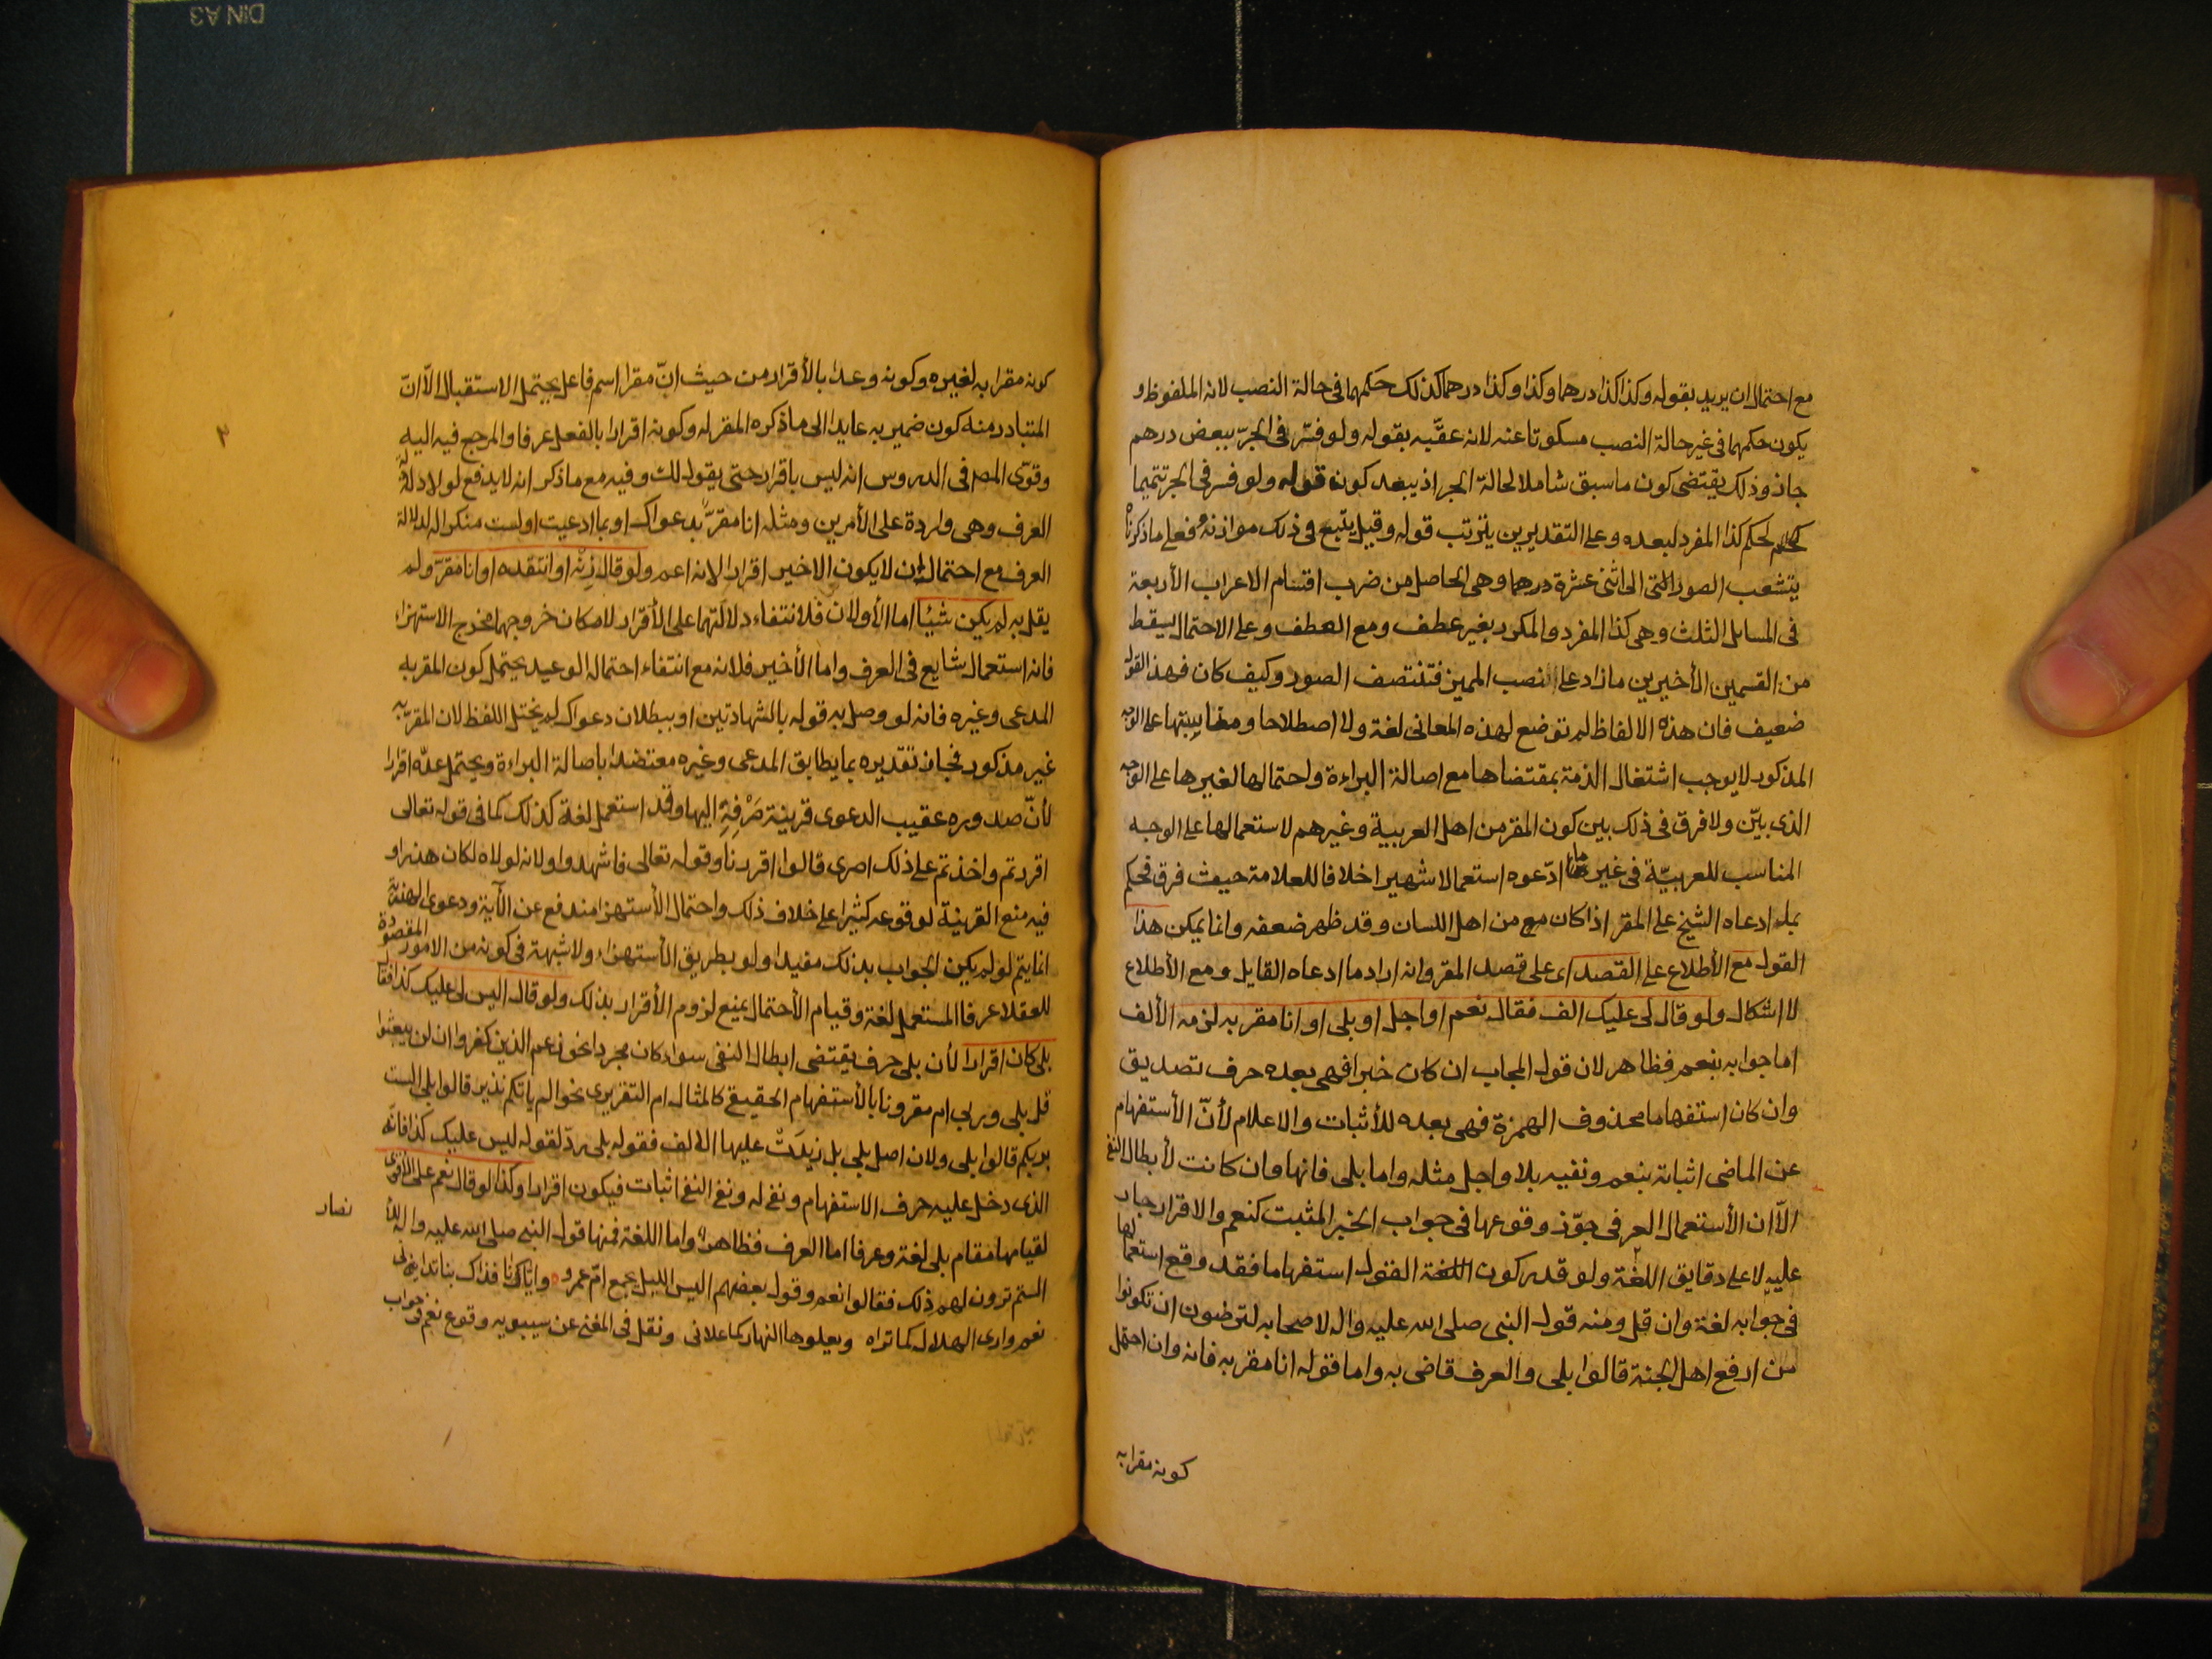 مع احتمال ان يريد بقوله وكذا كذا درهما وكذا وكذا درهما كذلك حكمهما فى حالة النصب لانه الملفوظ و
يكون حكمهما فى غير حالة النصب مسكوتا عنه لانه عقّبه بقوله ولو فسّر فى الجرّ ببعض درهم
جاز وذلك يقتضى كون ما سبق شاملا لحالة الجر اذ يبعد كون قوله ولو فسر فى الجر تتميما
لحكم كذا المفرد لبعده وعلى التقديرين يترتب قوله وقيل يتبع فى ذلك موازنه فعلى ما ذكرناه
يتشعب الصور التى الى اثنى عشرة درهما وهى الحاصل من ضرب اقسام الاعراب الأربعة
فى المسايل الثلث وهى كذا المفرد والمكرر بغير عطف ومع العطف وعلى الاحتمال يسقط
من القسمين الأخيرين ما زاد على نصب المميز فتنتصف الصور وكيف كان فهذا القول
ضعيف فان هذه الالفاظ لم توضع لهذه المعانى لغة ولا اصطلاحا ومناسبتها على الوجه
المذكور لا يوجب اشتغال الذمة بمقتضاها مع اصالة البراءة واحتمالها لغيرها على الوجه
الذى بيّن ولا فرق فى ذلك بين كون المقر من اهل العربية وغيرهم لاستعمالها على الوجه
المناسب للعربيّة فى غير ما ادّعوه استعمالا شهيرا خلافا للعلامة حيث فرق فحكم
بما ادعاه الشيخ على المقر اذا كان مع من اهل اللسان وقد ظهر ضعفه وانما يمكن هذا
القول مع الأطلاع على القصد اى على قصد المقر وانه اراد ما ادعاه القايل ومع الأطلاع
لا اشكال ولو قال لى عليك الف فقال نعم او اجل او بلى او انا مقر به لزمه الألف
اما جوابه بنعم فظاهر لان قول المجاب ان كان خبرا فهى بعده حرف تصديق
وان كان استفهاما محذوف الهمزة فهى بعده للأثبات والاعلام لأنّ الأستفهام
عن الماضى اثباته بنعم ونفيه بلا واجل مثله واما بلى فانها وان كانت لأبطال النفى
الّا ان الأستعمال العرفى جوّز وقوعها فى جواب الخبر المثبت كنعم والاقرار جار
عليه لا على دقايق اللغة ولو قدر كون القول استفهاما فقد وقع استعمالها
فى جوابه لغة وان قل ومنه قول النبى صلى الله عليه واله لاصحابه لترضون ان تكونوا
من ارفع اهل الجنة قالوا بلى والعرف قاضى به واما قوله انا مقر به فانه وان احتمل
كونه مقرا به
كونه مقرا به لغيره وكونه وعدا بالأقرار من حيث انّ مقرا اسم فاعل يحتمل الاستقبال الّا انّ
المتبادر منه كون ضمير به عايدا الى ما ذكره المقر له وكونه اقرارا بالفعل عرفا والمرجع فيه اليه
وقوّى المصـ فى الدروس انه ليس باقرار حتى يقول لك وفيه مع ما ذكر انه لا يدفع لولا دلالة
العرف وهى واردة على الأمرين ومثله انا مقرّ بدعواك او بما ادعيت او لست منكرا له لدلالة
العرف مع احتمال ان لا يكون الاخير اقرارا لانه اعم ولو قال زنه او انتقده او انا مقرّ ولم
يقل به لم يكن شيئا اما الأولان فلانتفاء دلالتهما على الأقرار لامكان خروجهما مخرج الاستهزاء
فانه استعمال شايع فى العرف واما الأخير فلانه مع انتفاء احتماله الوعيد يحتمل كون المقر به
المدعى وغيره فانه لو وصل به قوله بالشهادتين او ببطلان دعواك لم يختل اللفظ لان المقرّ به
غير مذكور فجاز تقديره بما يطابق المدعى وغيره معتضدا باصالة البراءة ويحتمل عدّه اقرارا
لأنّ صدوره عقيب الدعوى قرينة صرفه اليها وقد استعمل لغة كذلك كما فى قوله تعالى
اقررتم واخذتم على ذلك اصرى قالوا اقررنا وقوله تعالى فاشهدوا ولانه لولاه لكان هذرا و
فيه منع القرينة لوقوعه كثيرا على خلاف ذلك واحتمال الأستهزا مندفع عن الآية ودعوى الهذرية
انما يتم لو لم يكن الجواب بذلك مفيدا ولو بطريق الأستهزاء ولا شبهة فى كونه من الامور المقصودة
للعقلا عرفا المستعمل لغة وقيام الأحتمال يمنع لزوم الأقرار بذلك ولو قال اليس لى عليك كذا فقال
بلى كان اقرارا لأن بلى حرف يقتضى ابطال النفى سواء كان مجردا نحو زعم الذين كفروا ان لن يبعثوا
قل بلى وربى ام مقرونا بالأستفهام الحقيقى كالمثال ام التقريرى نحو الم ياتكم نذير قالوا بلى الست
بربكم قالوا بلى ولان اصل بلى بل زيدت عليها الالف فقوله بلى ردّ لقوله ليس عليك كذا فانه
الذى دخل عليه حرف الاستفهام ونفى له ونفى النفى اثبات فيكون اقرارا وكذا لو قال نعم على الأقوى
لقيامها مقام بلى لغة وعرفا اما العرف فظاهر واما اللغة فمنها قول النبى صلى الله عليه واله للأ
نصار
الستم ترون لهم ذلك فقالوا نعم وقول بعضهم اليس الليل يجمع امّ عمرو وايّانا فذاك بنا تدانى
نعم وارى الهلال كما تراه ويعلوها النهار كما علانى ونقل فى المغنى عن سيبويه وقوع نعم فى جواب